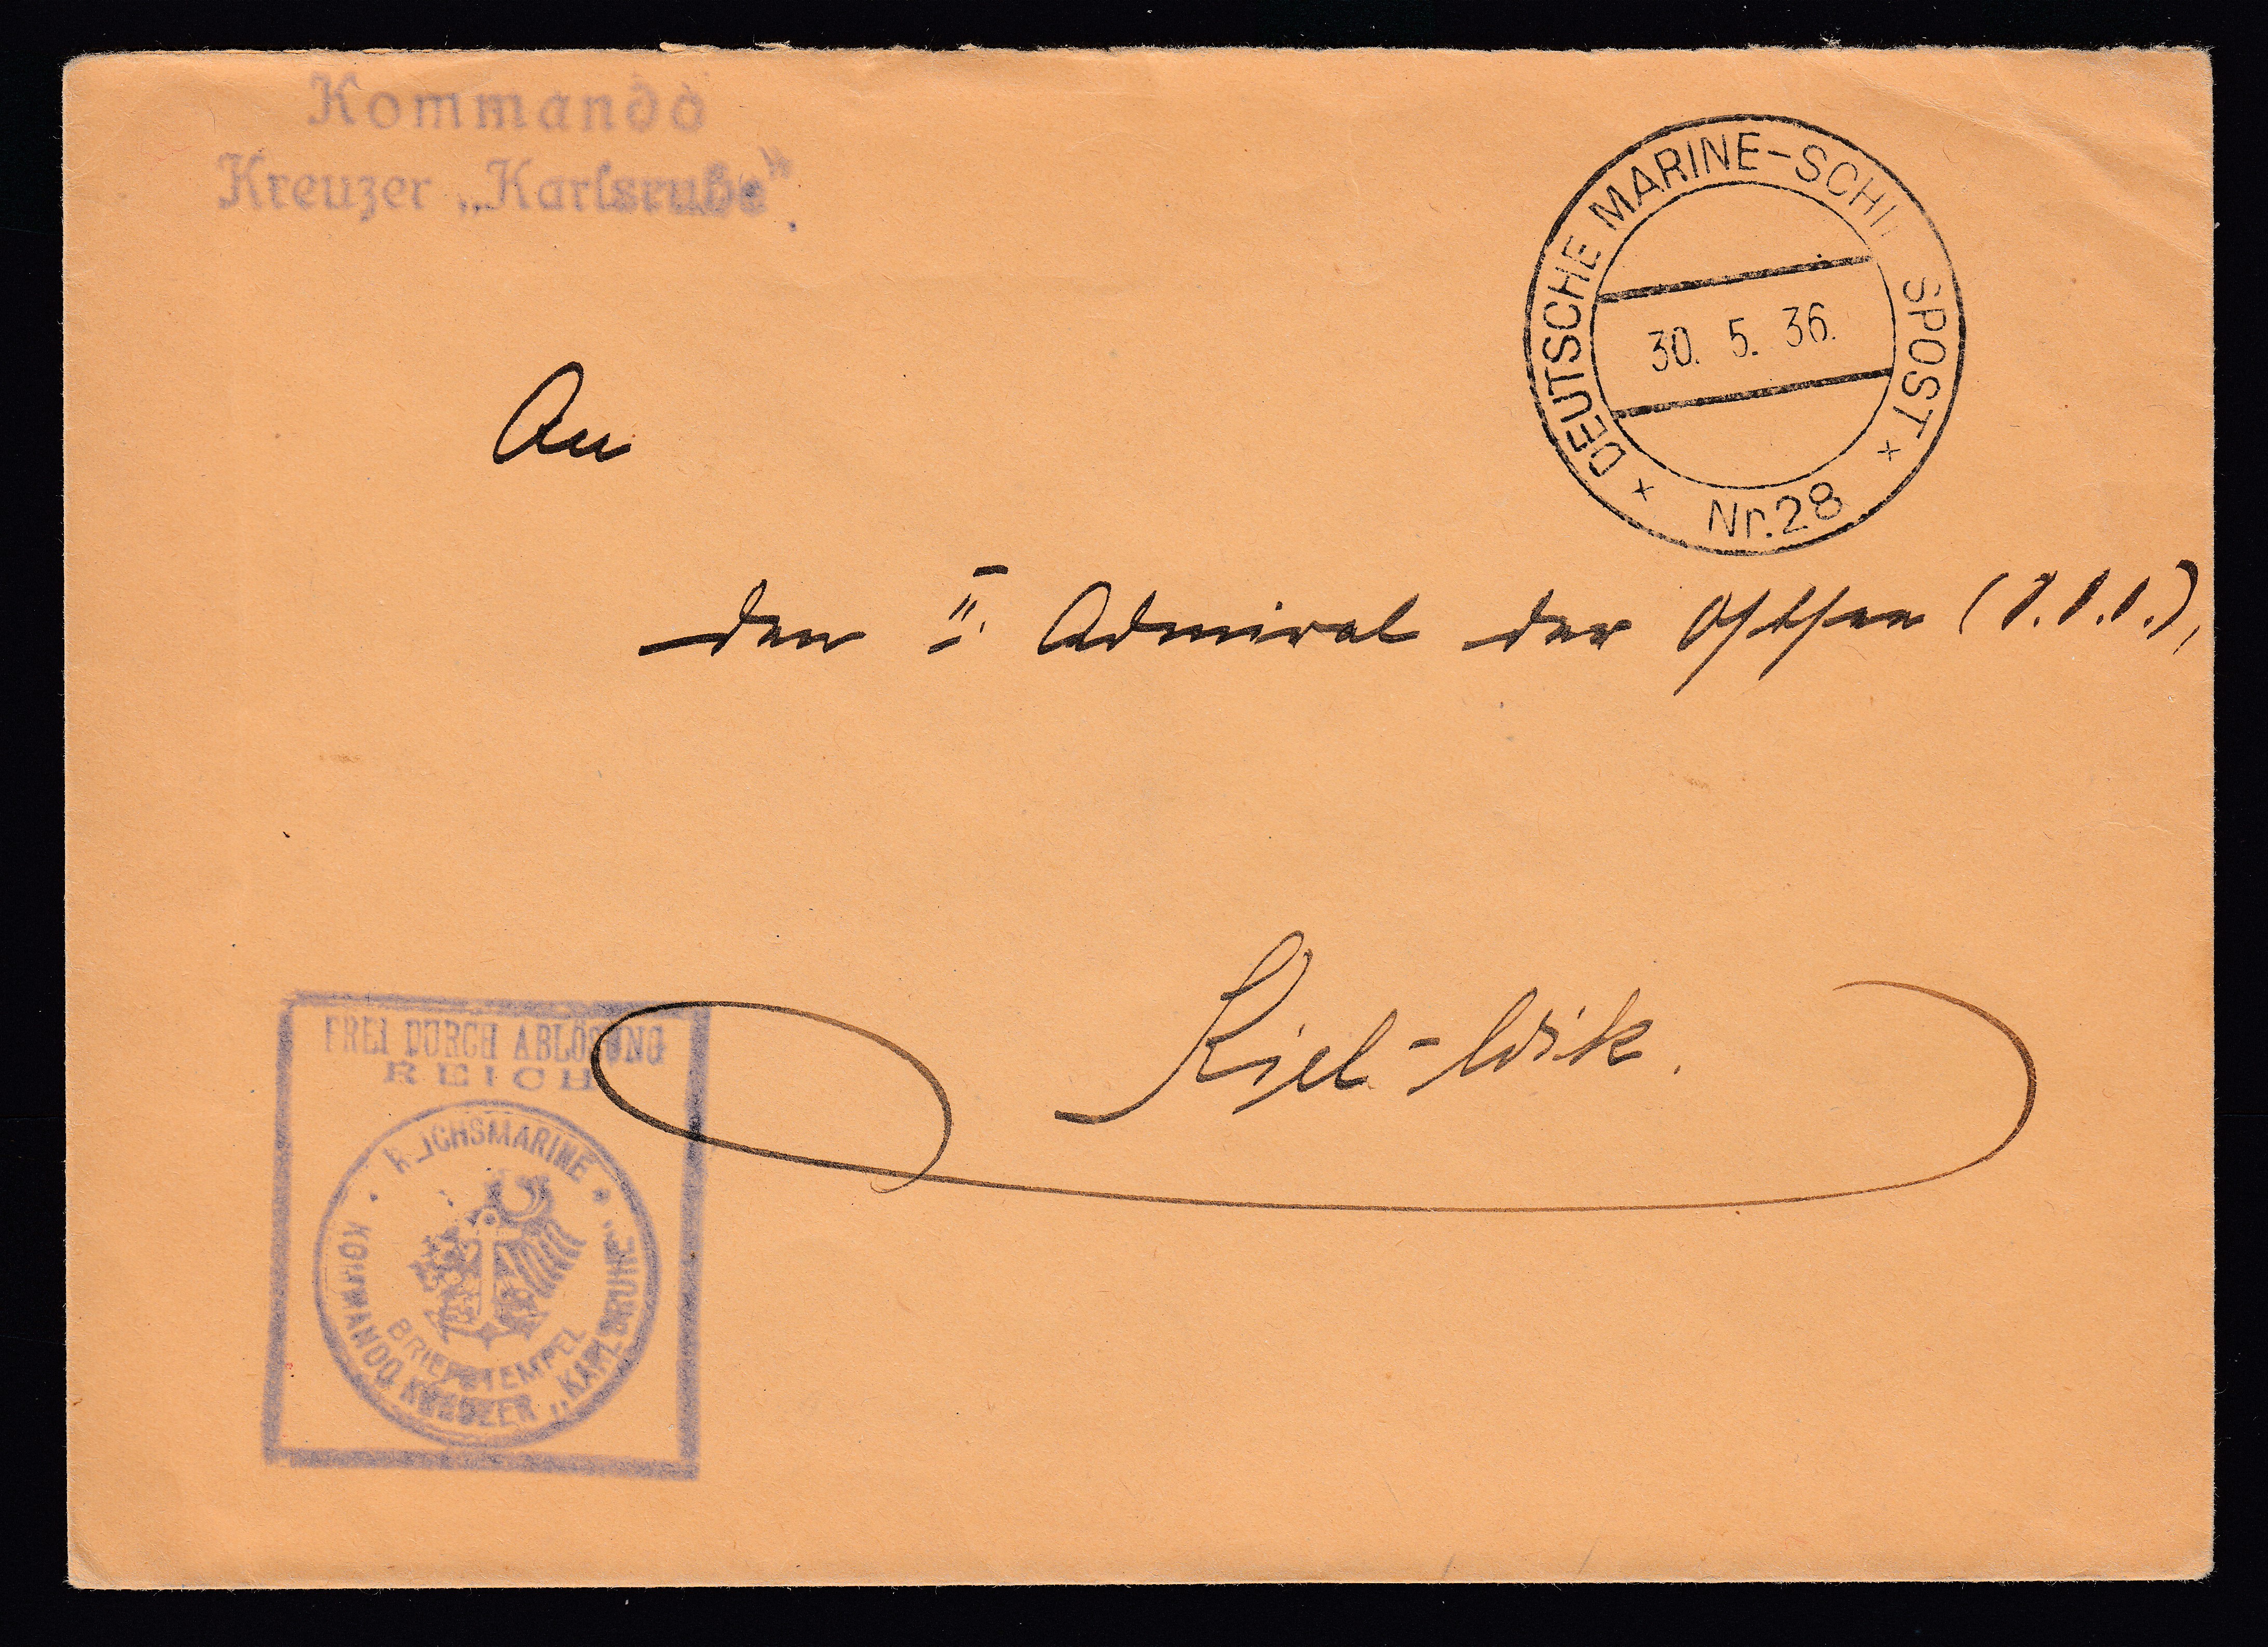 Kommando
Kreuzer „Karlsruhe".
DEUTSCHE MARINE-SCHI SPOST
30. 5. 36.
Nr.28
An
den II. Admiral der Ostsee
Kiel-Wik.
FREI DURCH ABLÖSUNG
REICH
REICHSMARINE
KOMMANDO KREUZER „KARLSRUHE"
BRIEFSTEMPEL